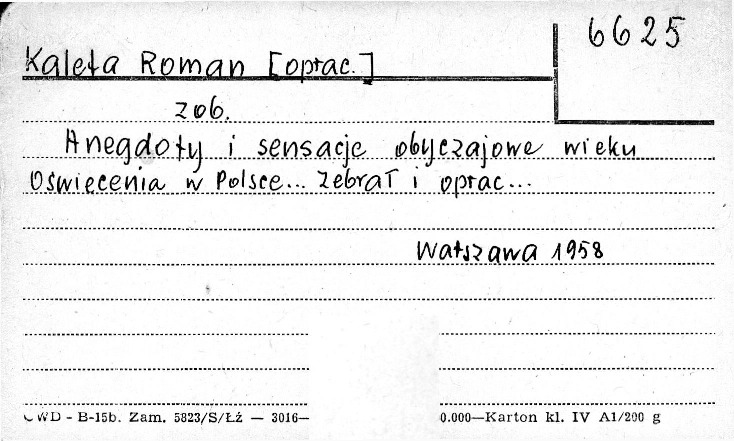 6625
Kaleta Roman [oprac.]
zob.
Anegdoty i sensacje obyczajowe wieku
Oświecenia w Polsce... zebrał i oprac...
Warszawa 1958
CWD - B-15b. Zam. 5823/S/Łź — 3016— 0.000—Karton kl. IV A1/200 g